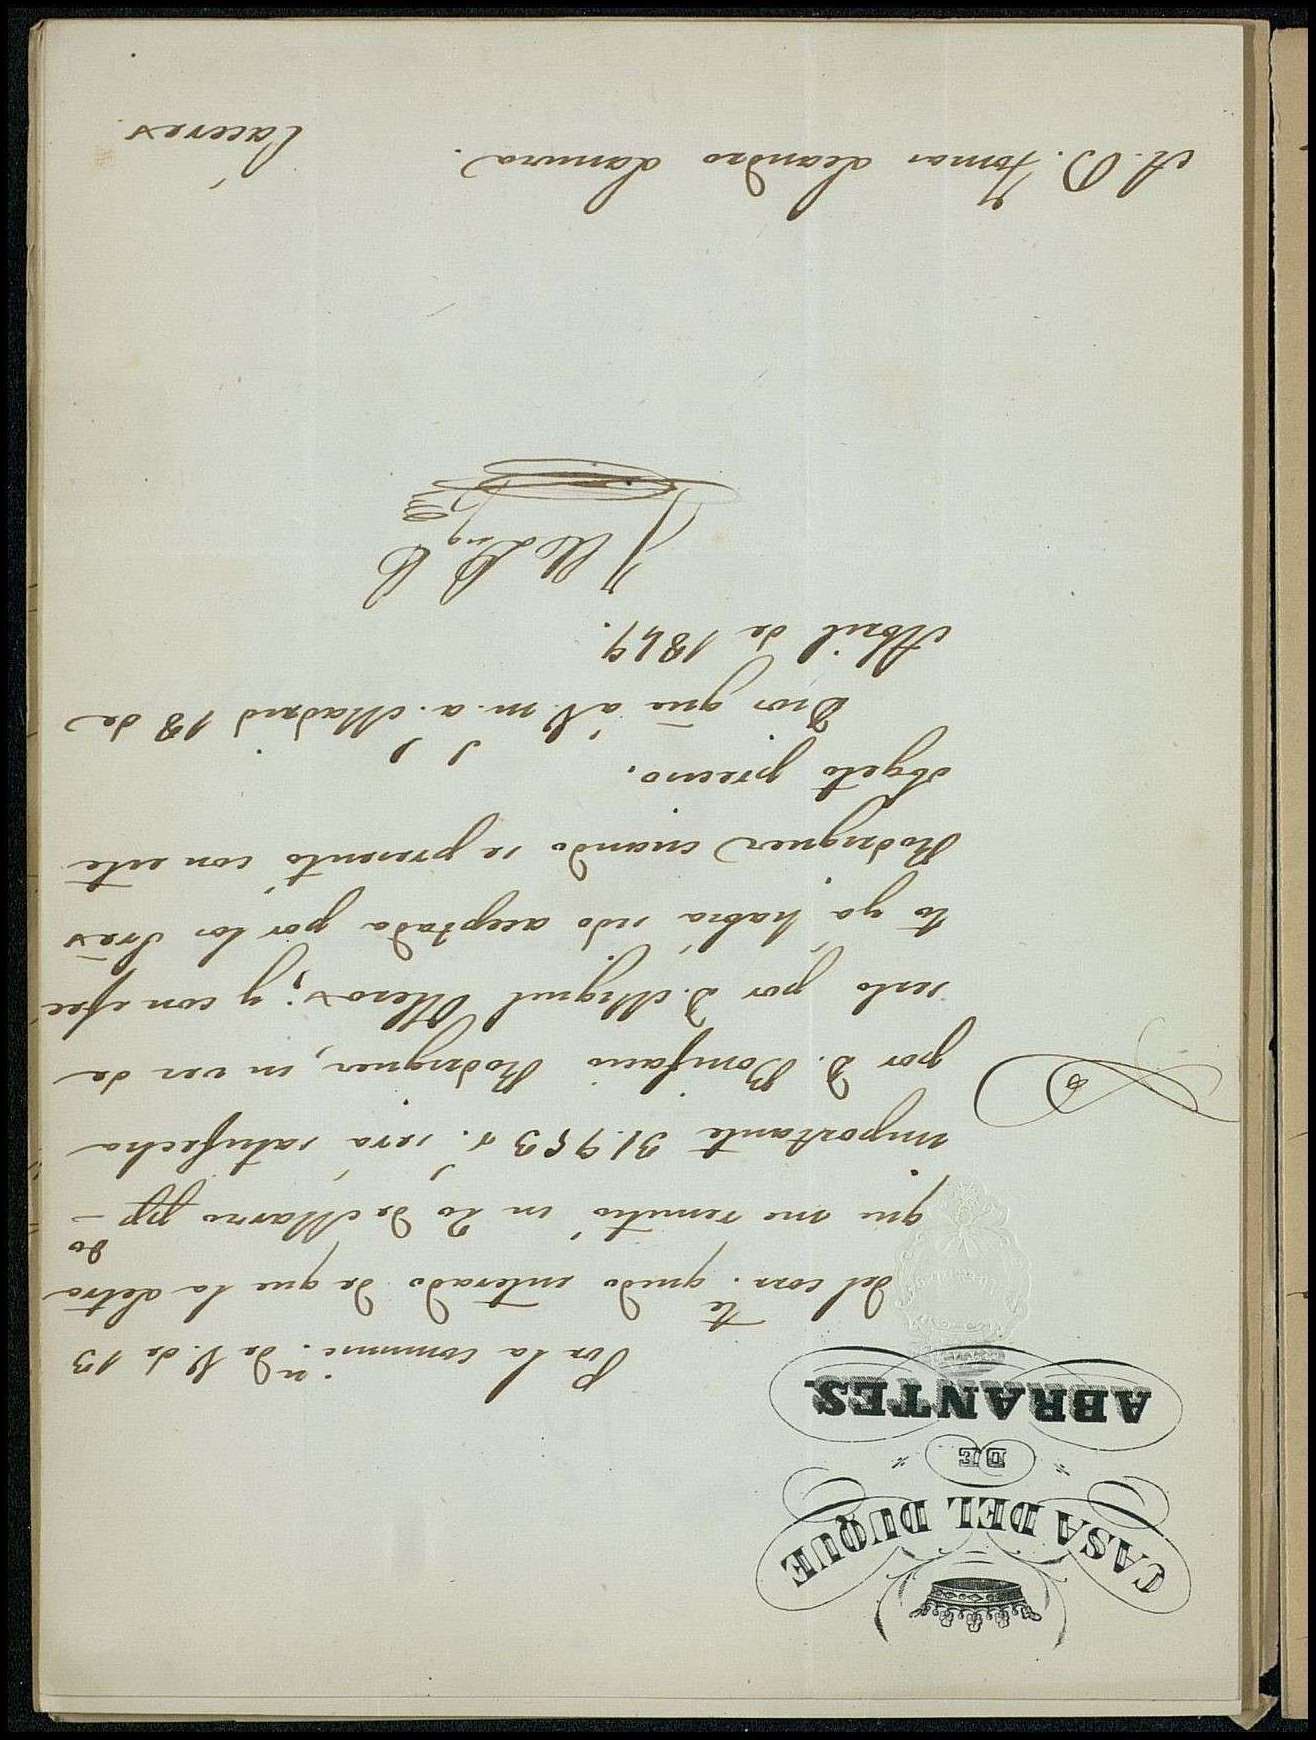 CASA DEL DUQUE
DE
ABRANTES.
Por la comunic.ⁿ de V. de 13
del corr.te quedo enterado de que la letra
que me remitió en 20 de Marzo pp.do
importante 31.953 r. será satisfecha
por D. Bonifacio Rodriguez, en vez de
serlo por D. Miguel Olleros; y con efec
to yá habia sido aceptada por los Sres
Rodriguez cuando se presentó con este
objeto preciso.
Dios gue á V. m. a. Madrid 18 de
Abril de 1849.
A. D. Tomas Leandro Lamura.
Cáceres